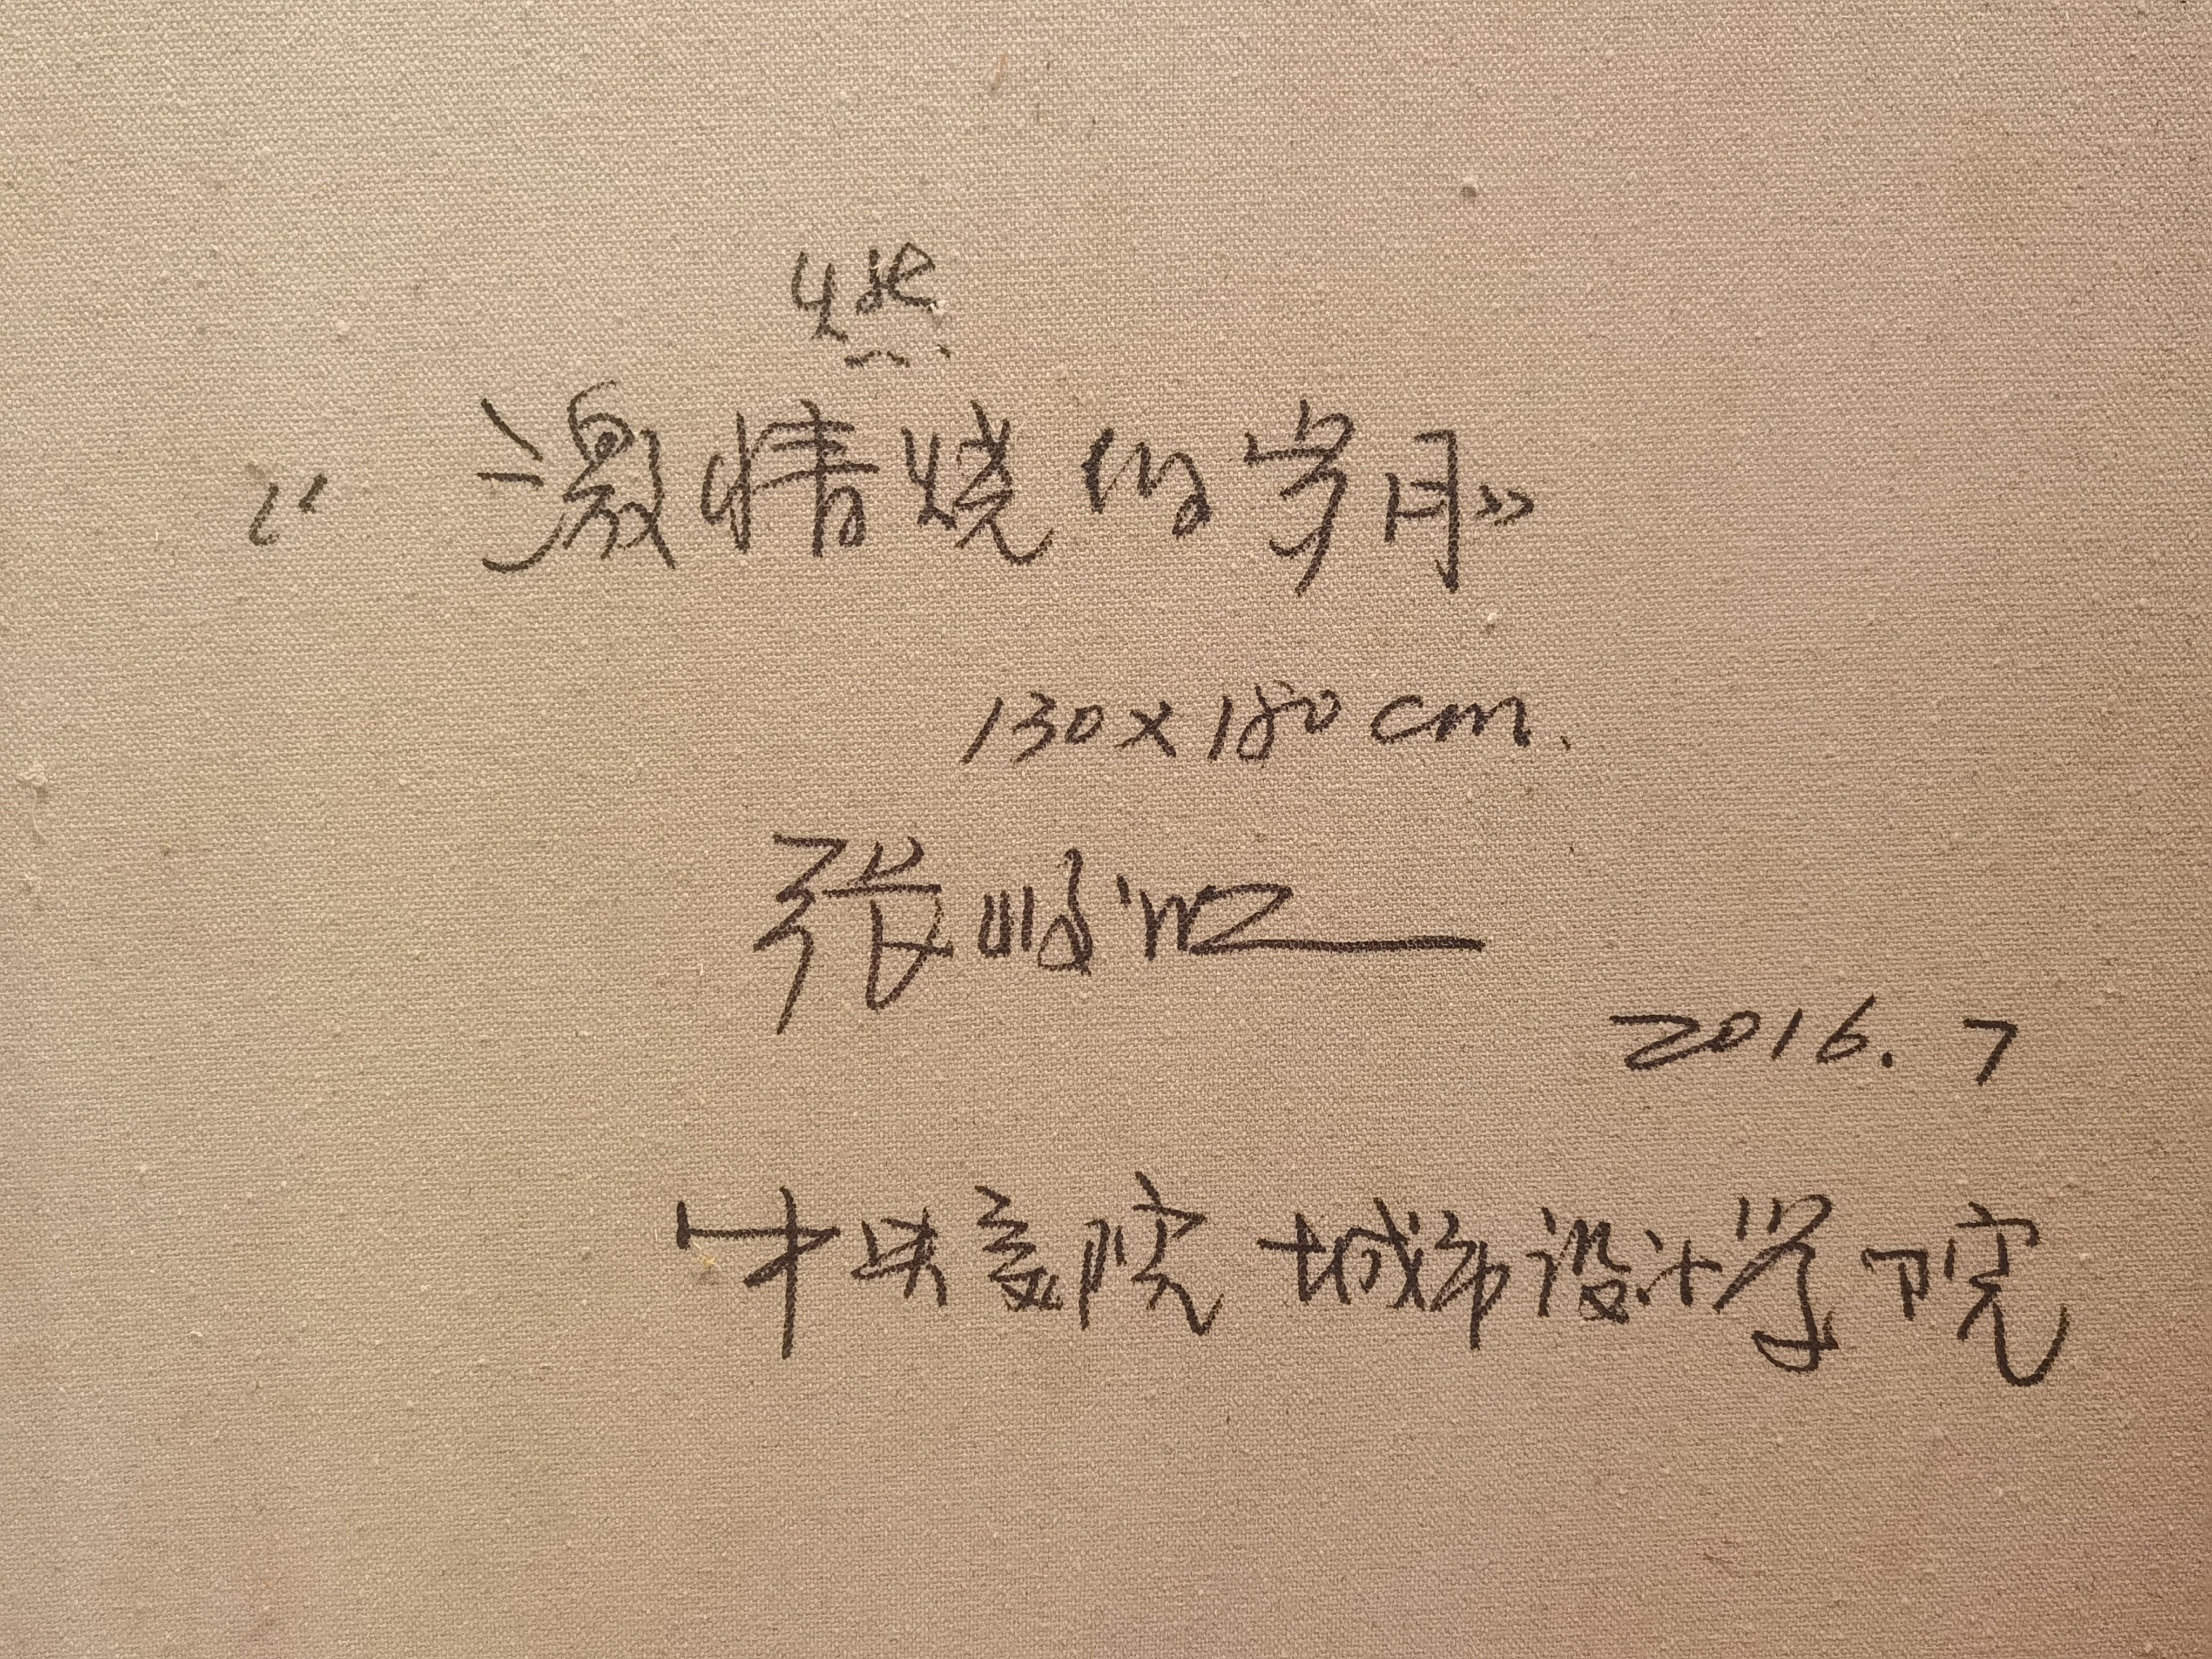 燃
“激情烧的岁月»
130x180cm.
张
2016.7
中央美院 城市设计学院